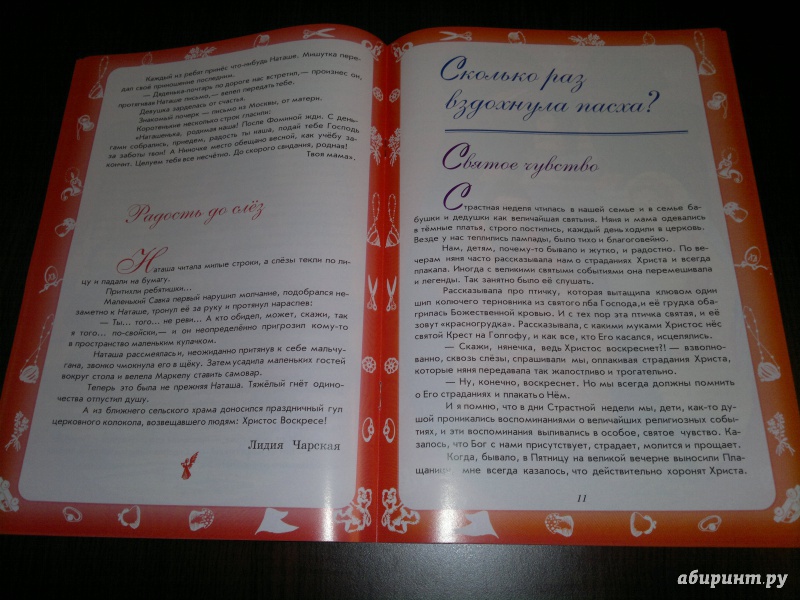 Каждый из ребят принёс что-нибудь Наташе. Мишутка пере-
дал своё приношение последним.
— Дяденька-почтарь по дороге нас встретил,— произнёс он,
протягивая Наташе письмо,— велел передать тебе.
Девушка зарделась от счастья.
Знакомый почерк — письмо из Москвы, от матери.
Коротенькие несколько строк гласили:
«Наташенька, родимая наша! После Фоминой жди. С день-
гами собрались, приедем, радость ты наша, подай тебе Господь
за заботы твои! А Ниночке место обещано весной, как учёбу за-
кончит. Целуем тебя все несчётно. До скорого свидания, родная!
Твоя мама».
Радость до слёз
Наташа читала милые строки, а слёзы текли по ли-
цу и падали на бумагу.
Притихли ребятишки...
Маленький Савка первый нарушил молчание, подобрался не-
заметно к Наташе, тронул её за руку и протянул нараспев:
— Ты... того... не реви... А кто обидел, может, скажи, так
я того... по-свойски,— и он неопределённо пригрозил кому-то
в пространство маленьким кулачком.
Наташа рассмеялась и, неожиданно притянув к себе мальчу-
гана, звонко чмокнула его в щёку. Затем усадила маленьких гостей
вокруг стола и велела Маркелу ставить самовар.
Теперь это была не прежняя Наташа. Тяжёлый гнёт одино-
чества отпустил душу.
А из ближнего сельского храма доносился праздничный гул
церковного колокола, возвещавшего людям: Христос Воскресе!
Лидия Чарская
Сколько раз
вздохнула пасха?
Святое чувство
Страстная неделя чтилась в нашей семье и в семье ба-
бушки и дедушки как величайшая святыня. Няня и мама одевались
в тёмные платья, строго постились, каждый день ходили в церковь.
Везде у нас теплились лампады, было тихо и благоговейно.
Нам, детям, почему-то бывало и жутко, и радостно. По ве-
черам няня часто рассказывала нам о страданиях Христа и всегда
плакала. Иногда с великими святыми событиями она перемешивала
и легенды. Так занятно было её слушать.
Рассказывала про птичку, которая вытащила клювом один
шип колючего терновника из святого лба Господа, и её грудка оба-
грилась Божественной кровью. И с тех пор эта птичка святая, и её
зовут «красногрудка». Рассказывала, с какими муками Христос нёс
святой Крест на Голгофу, и как все, кто Его касался, исцелялись.
— Скажи, нянечка, ведь Христос воскреснет?! — взволно-
ванно, сквозь слёзы, спрашивали мы, оплакивая страдания Христа,
которые няня передавала так жалостливо и трогательно.
— Ну, конечно, воскреснет. Но мы всегда должны помнить
о Его страданиях и плакать о Нём.
И я помню, что в дни Страстной недели мы, дети, как-то ду-
шой проникались воспоминаниями о величайших религиозных собы-
тиях, и эти воспоминания выливались в особое, святое чувство. Ка-
залось, что Бог с нами присутствует, страдает, молится и прощает.
Когда, бывало, в Пятницу на великой вечерне выносили Пла-
щаницу, мне всегда казалось, что действительно хоронят Христа.
11
абиринт.ру